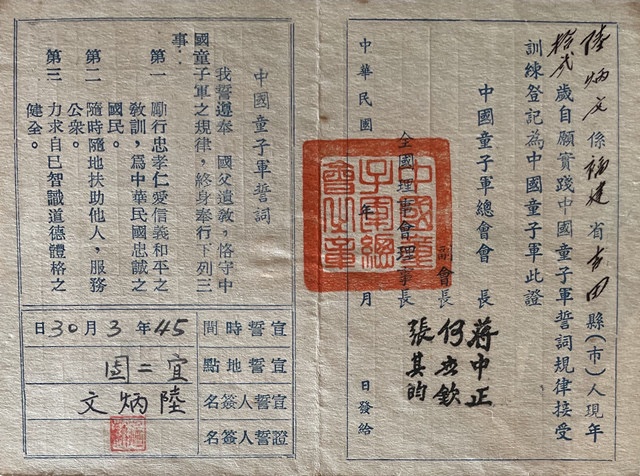 陸炳文係福建省古田縣(市)人現年
拾弍歲自願實踐中國童子軍誓詞規律接受
訓練登記為中國童子軍此證
中國童子軍總會會長 蔣中正
副會長 何應欽
全國理事會理事長 張其昀
中華民國 年 月 日發給
中國童子軍總會之章
中國童子軍誓詞
我誓遵奉 國父遺教,恪守中
國童子軍之規律,終身奉行下列三
事:
第一 勵行忠孝仁愛信義和平之
敎訓,爲中華民國忠誠之
國民。
第二 隨時隨地扶助他人,服務
公衆。
第三 力求自己智識道德體格之
健全。
宣誓時間 45年3月30日
宣誓地點 宜二國
宣誓人簽名 陸炳文
證誓人簽名